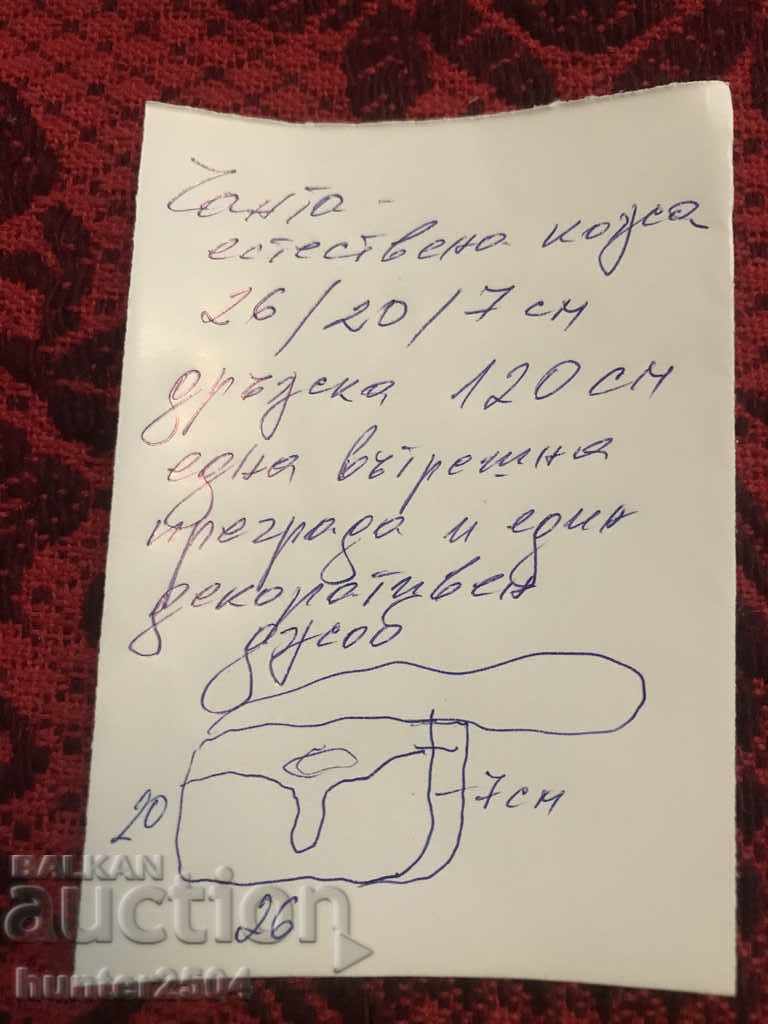 Чанта -
естествена кожа
26/20/7 см
дръжка 120 см
една вътрешна
преграда и един
декоративен
джоб
20
7 см
26
BALKAN
auction
hunter2504